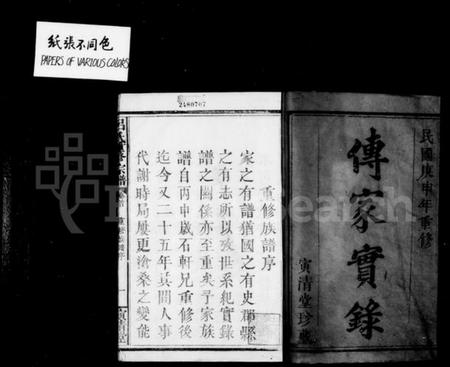 紙張不同色
PAPERS OF VARIOUS COLORS
2480707
民國庚申年重修
傳家實錄
寅清堂珍藏
重修族譜序
家之有譜猶國之有史郡縣
之有志所以核世系紀實錄
譜之關係亦至重矣予家族
譜自丙申歲石軒兄重修後
迄今又二十五年其間人事
代謝時局屢更滄桑之變能